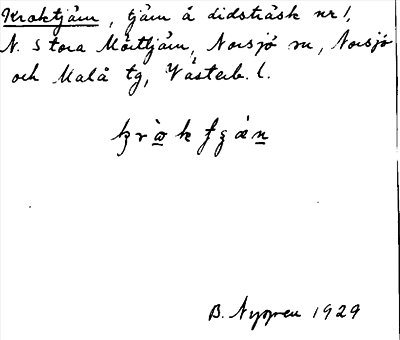 Kroktjärn, tjärn å didsträsk nr 1,
N. Stora Mörttjärn, Norsjö sn, Norsjö
och Malå tg, Västerb. l.
B. Nygren 1929